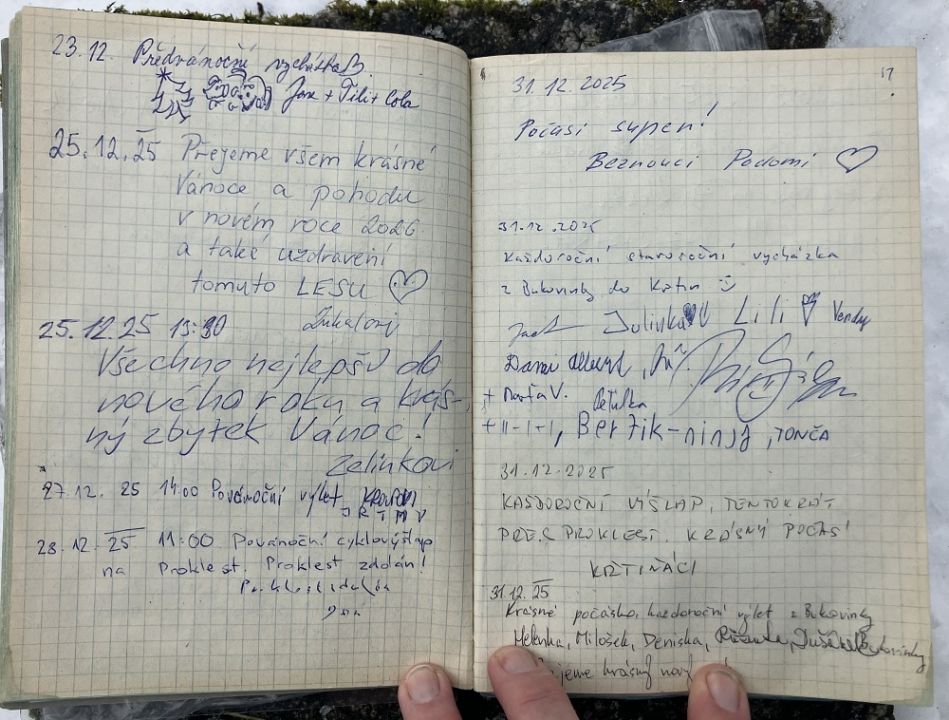 23.12. Předvánoční vycházka
Jan + Fili + Cola
25.12.25 Přejeme všem krásné
Vánoce a pohodu
v novém roce 2026
a také uzdravení
tomuto LESU
Zukalovi
25.12.25 13:30
Všechno nejlepší do
nového roku a krás-
ný zbytek Vánoc!
Zelinkovi
27.12. 25 14:00 Povánoční výlet
J R T M V
28.12. 25 11:00 Povánoční cyklovýšlap
na Proklest. Proklest zdolán!
17
31.12.2025
Počasí super!
Beznouci Podomí
31.12.2025
Každoroční staroroční vycházka
z Bukovinky do Křtin
Julinka Lili Vendy
+ Marťa V.
Bertík-ninja, TONČA
31.12.2025
KAŽDOROČNÍ VÝŠLAP, TENTOKRÁT
PŘES PROKLEST. KRÁSNÝ POČASÍ
KŘTIŇÁCI
31.12.25
Krásné počásko, každoroční výlet z Bukovinky
Helenka, Milošek, Deniska,
krásný nový